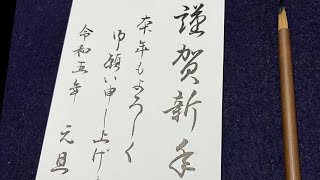 謹賀新年
本年もよろしく
御願い申し上げ
令和五年
元旦